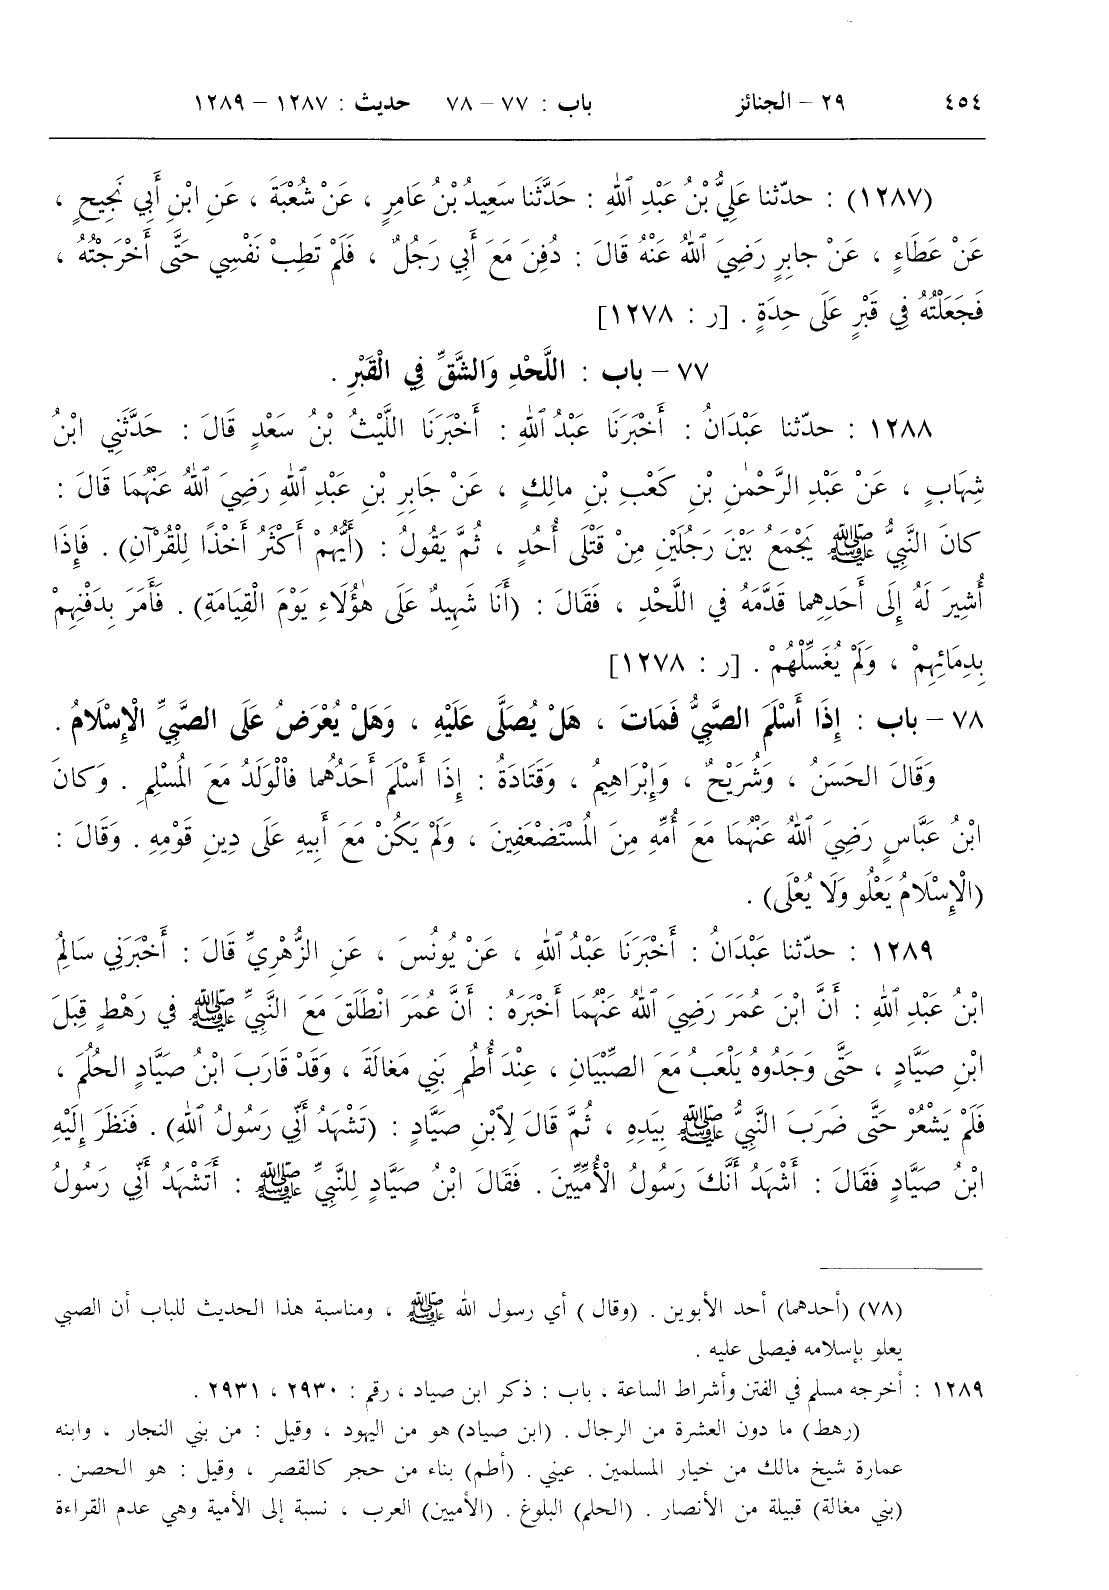 ٤٥٤ ٢٩ – الجنائز باب : ٧٧ – ٧٨ حديث : ١٢٨٧ – ١٢٨٩
(١٢٨٧) : حدّثنا عَلِيُّ بْنُ عَبْدِ اللهِ : حَدَّثَنَا سَعِيدُ بْنُ عَامِرٍ ، عَنْ شُعْبَةَ ، عَنِ ابْنِ أَبِي نَجِيحٍ ،
عَنْ عَطَاءٍ ، عَنْ جابِرٍ رَضِيَ اللهُ عَنْهُ قَالَ : دُفِنَ مَعَ أَبِي رَجُلٌ ، فَلَمْ تَطِبْ نَفْسِي حَتَّى أَخْرَجْتُهُ ،
فَجَعَلْتُهُ فِي قَبْرٍ عَلَى حِدَةٍ . [ر : ١٢٧٨]
٧٧ – باب : اللَّحْدِ وَالشَّقِّ فِي الْقَبْرِ .
١٢٨٨ : حدّثنا عَبْدَانُ : أَخْبَرَنَا عَبْدُ اللهِ : أَخْبَرَنَا اللَّيْثُ بْنُ سَعْدٍ قَالَ : حَدَّثَنِي ابْنُ
شِهَابٍ ، عَنْ عَبْدِ الرَّحْمٰنِ بْنِ كَعْبِ بْنِ مالِكٍ ، عَنْ جَابِرِ بْنِ عَبْدِ اللهِ رَضِيَ اللهُ عَنْهُمَا قَالَ :
كانَ النَّبِيُّ ﷺ يَجْمَعُ بَيْنَ رَجُلَيْنِ مِنْ قَتْلَى أُحُدٍ ، ثُمَّ يَقُولُ : (أَيُّهُمْ أَكْثَرُ أَخْذًا لِلْقُرْآنِ) . فَإِذَا
أُشِيرَ لَهُ إِلَى أَحَدِهِما قَدَّمَهُ في اللَّحْدِ ، فَقَالَ : (أَنَا شَهِيدٌ عَلَى هٰؤُلَاءِ يَوْمَ الْقِيَامَةِ) . فَأَمَرَ بِدَفْنِهِمْ
بِدِمَائِهِمْ ، وَلَمْ يُغَسِّلْهُمْ . [ر : ١٢٧٨]
٧٨ – باب : إِذَا أَسْلَمَ الصَّبِيُّ فَمَاتَ ، هَلْ يُصَلَّى عَلَيْهِ ، وَهَلْ يُعْرَضُ عَلَى الصَّبِيِّ الْإِسْلَامُ .
وَقَالَ الحَسَنُ ، وَشُرَيْحٌ ، وَإِبْرَاهِيمُ ، وَقَتَادَةُ : إِذَا أَسْلَمَ أَحَدُهُما فَالْوَلَدُ مَعَ الْمُسْلِمِ . وَكانَ
ابْنُ عَبَّاسٍ رَضِيَ اللهُ عَنْهُمَا مَعَ أُمِّهِ مِنَ الْمُسْتَضْعَفِينَ ، وَلَمْ يَكُنْ مَعَ أَبِيهِ عَلَى دِينِ قَوْمِهِ . وَقَالَ :
(الْإِسْلَامُ يَعْلُو وَلَا يُعْلَى) .
١٢٨٩ : حدّثنا عَبْدَانُ : أَخْبَرَنَا عَبْدُ اللهِ ، عَنْ يُونُسَ ، عَنِ الزُّهْرِيِّ قَالَ : أَخْبَرَنِي سَالِمُ
ابْنُ عَبْدِ اللهِ : أَنَّ ابْنَ عُمَرَ رَضِيَ اللهُ عَنْهُمَا أَخْبَرَهُ : أَنَّ عُمَرَ انْطَلَقَ مَعَ النَّبِيِّ ﷺ في رَهْطٍ قِبَلَ
ابْنِ صَيَّادٍ ، حَتَّى وَجَدُوهُ يَلْعَبُ مَعَ الصِّبْيَانِ ، عِنْدَ أُطُمِ بَنِي مَغالَةَ ، وَقَدْ قَارَبَ ابْنُ صَيَّادٍ الحُلُمَ ،
فَلَمْ يَشْعُرْ حَتَّى ضَرَبَ النَّبِيُّ ﷺ بِيَدِهِ ، ثُمَّ قَالَ لِابْنِ صَيَّادٍ : (تَشْهَدُ أَنِّي رَسُولُ اللهِ) . فَنَظَرَ إِلَيْهِ
ابْنُ صَيَّادٍ فَقَالَ : أَشْهَدُ أَنَّكَ رَسُولُ الْأُمِّيِّينَ . فَقَالَ ابْنُ صَيَّادٍ لِلنَّبِيِّ ﷺ : أَتَشْهَدُ أَنِّي رَسُولُ
(٧٨) (أحدهما) أحد الأبوين . (وقال) أي رسول الله ﷺ ، ومناسبة هذا الحديث للباب أن الصبي
يعلو بإسلامه فيصلى عليه .
١٢٨٩ : أخرجه مسلم في الفتن وأشراط الساعة ، باب : ذكر ابن صياد ، رقم : ٢٩٣٠ ، ٢٩٣١ .
(رهط) ما دون العشرة من الرجال . (ابن صياد) هو من اليهود ، وقيل : من بني النجار ، وابنه
عمارة شيخ مالك من خيار المسلمين . عيني . (أطم) بناء من حجر كالقصر ، وقيل : هو الحصن .
(بني مغالة) قبيلة من الأنصار . (الحلم) البلوغ . (الأميين) العرب ، نسبة إلى الأمية وهي عدم القراءة